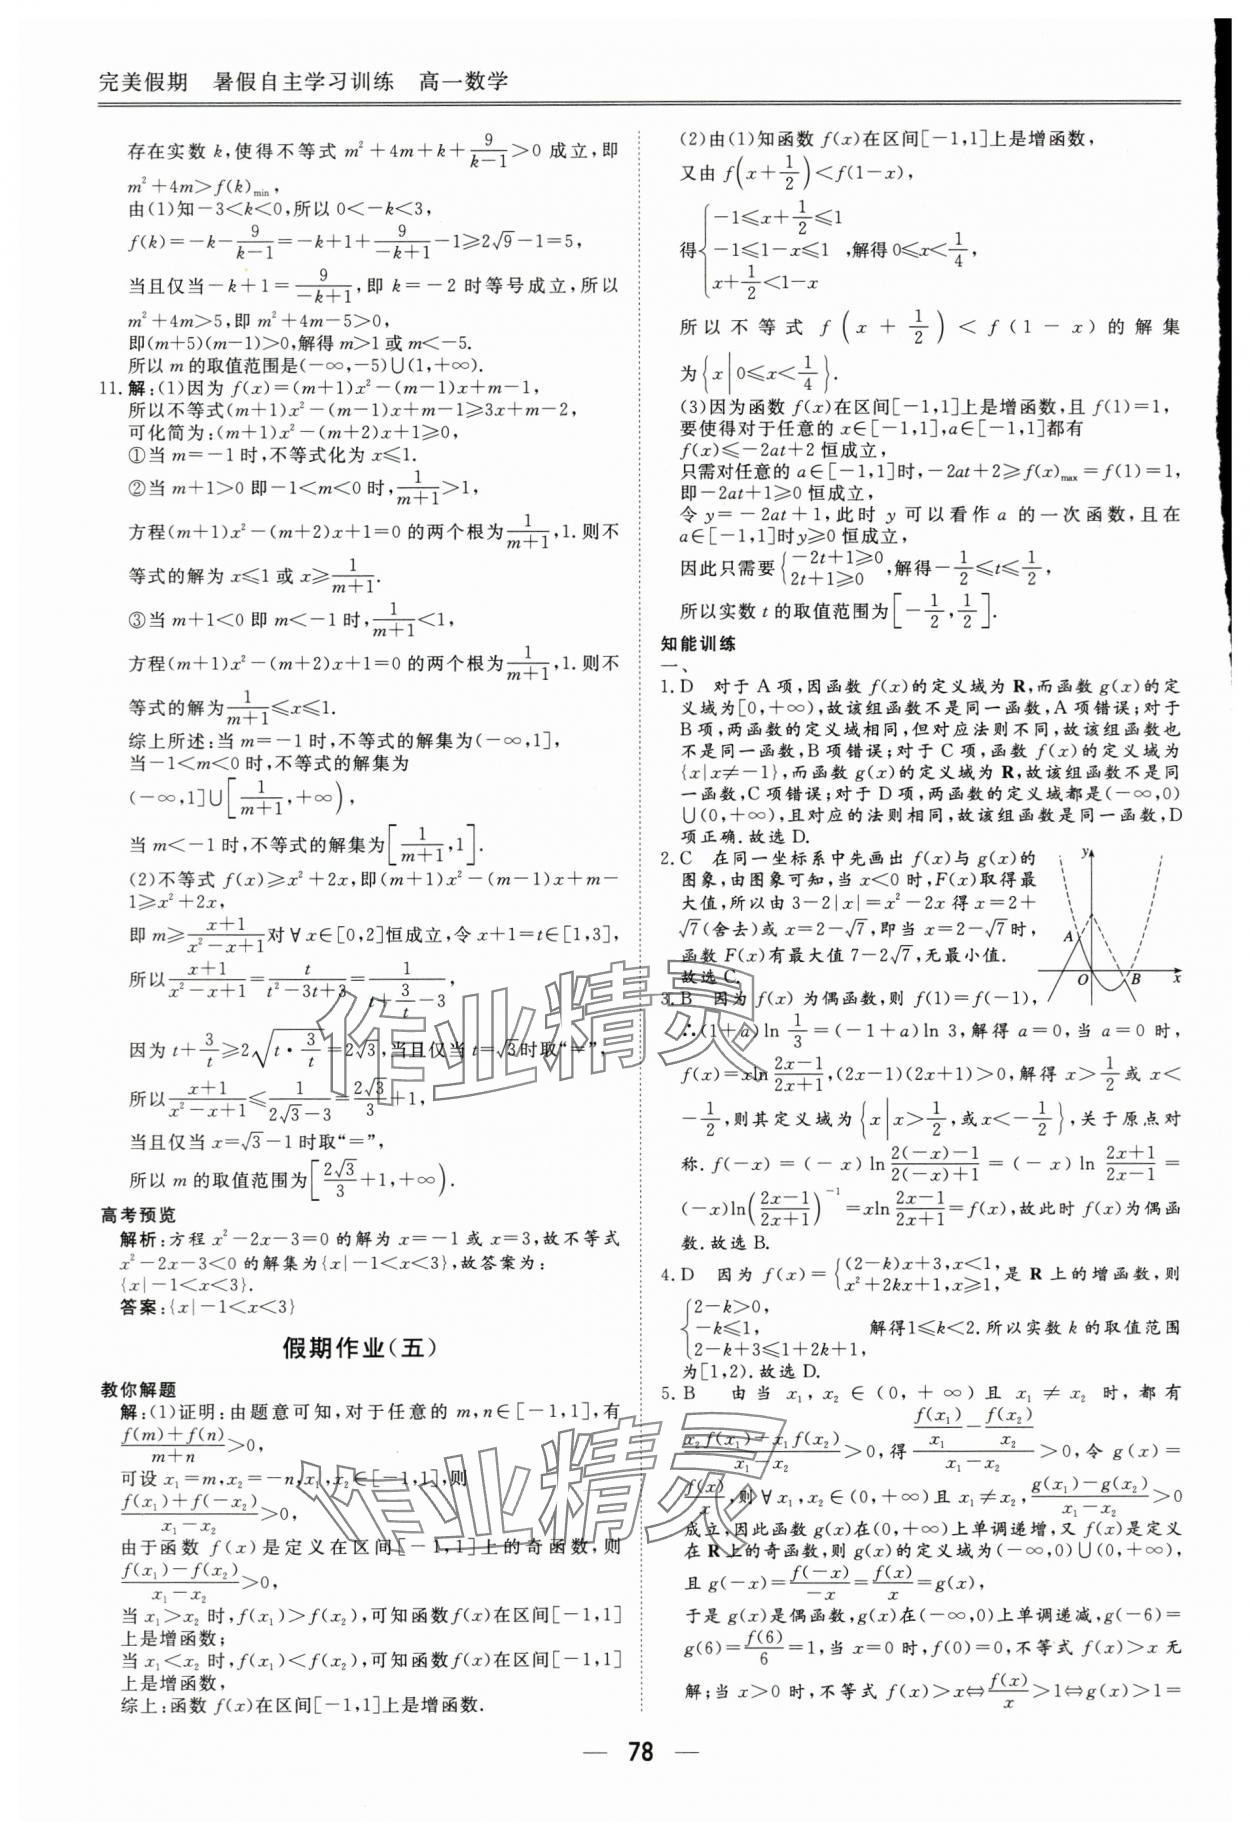 完美假期　暑假自主学习训练　高一数学
存在实数 k,使得不等式 m²+4m+k+9/(k-1)>0 成立,即
m²+4m>f(k)min,
由(1)知-3<k<0,所以 0<-k<3,
f(k)=-k-9/(k-1)=-k+1+9/(-k+1)-1≥2√9-1=5,
当且仅当-k+1=9/(-k+1),即 k=-2 时等号成立,所以
m²+4m>5,即 m²+4m-5>0,
即(m+5)(m-1)>0,解得 m>1 或 m<-5.
所以 m 的取值范围是(-∞,-5)∪(1,+∞).
11.解:(1)因为 f(x)=(m+1)x²-(m-1)x+m-1,
所以不等式(m+1)x²-(m-1)x+m-1≥3x+m-2,
可化简为:(m+1)x²-(m+2)x+1≥0,
①当 m=-1 时,不等式化为 x≤1.
②当 m+1>0 即-1<m<0 时,1/(m+1)>1,
方程(m+1)x²-(m+2)x+1=0 的两个根为1/(m+1),1.则不
等式的解为 x≤1 或 x≥1/(m+1).
③当 m+1<0 即 m<-1 时,1/(m+1)<1,
方程(m+1)x²-(m+2)x+1=0 的两个根为1/(m+1),1.则不
等式的解为1/(m+1)≤x≤1.
综上所述:当 m=-1 时,不等式的解集为(-∞,1],
当-1<m<0 时,不等式的解集为
(-∞,1]∪[1/(m+1),+∞),
当 m<-1 时,不等式的解集为[1/(m+1),1].
(2)不等式 f(x)≥x²+2x,即(m+1)x²-(m-1)x+m-
1≥x²+2x,
即 m≥(x+1)/(x²-x+1)对∀x∈[0,2]恒成立,令 x+1=t∈[1,3],
所以(x+1)/(x²-x+1)=t/(t²-3t+3)=1/(t+3/t-3)
因为 t+3/t≥2√(t·3/t)=2√3,当且仅当 t=√3时取“=”,
所以(x+1)/(x²-x+1)≤1/(2√3-3)=2√3/3+1,
当且仅当 x=√3-1 时取“=”,
所以 m 的取值范围为[2√3/3+1,+∞).
高考预览
解析:方程 x²-2x-3=0 的解为 x=-1 或 x=3,故不等式
x²-2x-3<0 的解集为{x|-1<x<3},故答案为:
{x|-1<x<3}.
答案:{x|-1<x<3}
假期作业(五)
教你解题
解:(1)证明:由题意可知,对于任意的 m,n∈[-1,1],有
(f(m)+f(n))/(m+n)>0,
可设 x₁=m,x₂=-n,x₁,x₂∈[-1,1],则
(f(x₁)+f(-x₂))/(x₁-x₂)>0,
由于函数 f(x)是定义在区间[-1,1]上的奇函数,则
(f(x₁)-f(x₂))/(x₁-x₂)>0,
当 x₁>x₂ 时,f(x₁)>f(x₂),可知函数f(x)在区间[-1,1]
上是增函数;
当 x₁<x₂ 时,f(x₁)<f(x₂),可知函数f(x)在区间[-1,1]
上是增函数,
综上:函数 f(x)在区间[-1,1]上是增函数.
(2)由(1)知函数 f(x)在区间[-1,1]上是增函数,
又由 f(x+1/2)<f(1-x),
得{-1≤x+1/2≤1
-1≤1-x≤1 ,解得 0≤x<1/4,
x+1/2<1-x
所以不等式 f(x+1/2)<f(1-x)的解集
为{x|0≤x<1/4}.
(3)因为函数 f(x)在区间[-1,1]上是增函数,且 f(1)=1,
要使得对于任意的 x∈[-1,1],a∈[-1,1]都有
f(x)≤-2at+2 恒成立,
只需对任意的 a∈[-1,1]时,-2at+2≥f(x)max=f(1)=1,
即-2at+1≥0 恒成立,
令 y=-2at+1,此时 y 可以看作 a 的一次函数,且在
a∈[-1,1]时y≥0 恒成立,
因此只需要{-2t+1≥0 2t+1≥0 ,解得-1/2≤t≤1/2,
所以实数 t 的取值范围为[-1/2,1/2].
知能训练
一、
1.D　对于 A 项,因函数 f(x)的定义域为 R,而函数 g(x)的定
义域为[0,+∞),故该组函数不是同一函数,A 项错误;对于
B 项,两函数的定义域相同,但对应法则不同,故该组函数也
不是同一函数,B 项错误;对于 C 项,函数 f(x)的定义域为
{x|x≠-1},而函数 g(x)的定义域为 R,故该组函数不是同
一函数,C 项错误;对于 D 项,两函数的定义域都是(-∞,0)
∪(0,+∞),且对应的法则相同,故该组函数是同一函数,D
项正确.故选 D.
2.C　在同一坐标系中先画出 f(x)与 g(x)的
图象,由图象可知,当 x<0 时,F(x)取得最
大值,所以由 3-2|x|=x²-2x 得 x=2+
√7(舍去)或 x=2-√7,即当 x=2-√7时,
函数 F(x)有最大值 7-2√7,无最小值.
故选 C.
y
A
O
B
x
3.B　因为 f(x) 为偶函数,则 f(1)=f(-1),
∴(1+a)ln 1/3=(-1+a)ln 3,解得 a=0,当 a=0 时,
f(x)=xln (2x-1)/(2x+1),(2x-1)(2x+1)>0,解得 x>1/2 或 x<
-1/2,则其定义域为{x|x>1/2,或x<-1/2},关于原点对
称.f(-x)=(-x)ln (2(-x)-1)/(2(-x)+1)=(-x)ln (2x+1)/(2x-1)=
(-x)ln((2x-1)/(2x+1))⁻¹=xln (2x-1)/(2x+1)=f(x),故此时 f(x)为偶函
数.故选 B.
4.D　因为 f(x)={(2-k)x+3,x<1, x²+2kx+1,x≥1,是 R 上的增函数,则
{2-k>0,
-k≤1,　解得1≤k<2.所以实数 k 的取值范围
2-k+3≤1+2k+1,
为[1,2).故选 D.
5.B　由当 x₁,x₂∈(0,+∞)且 x₁≠x₂ 时,都有
(x₂f(x₁)-x₁f(x₂))/(x₁-x₂)>0,得(f(x₁)/x₁-f(x₂)/x₂)/(x₁-x₂)>0,令 g(x)=
f(x)/x,则∀x₁,x₂∈(0,+∞)且 x₁≠x₂,(g(x₁)-g(x₂))/(x₁-x₂)>0
成立,因此函数 g(x)在(0,+∞)上单调递增,又 f(x)是定义
在 R 上的奇函数,则 g(x)的定义域为(-∞,0)∪(0,+∞),
且 g(-x)=f(-x)/(-x)=f(x)/x=g(x),
于是 g(x)是偶函数,g(x)在(-∞,0)上单调递减,g(-6)=
g(6)=f(6)/6=1,当 x=0 时,f(0)=0,不等式 f(x)>x 无
解;当 x>0 时,不等式 f(x)>x⇔f(x)/x>1⇔g(x)>1=
— 78 —
作业精灵
作业精灵